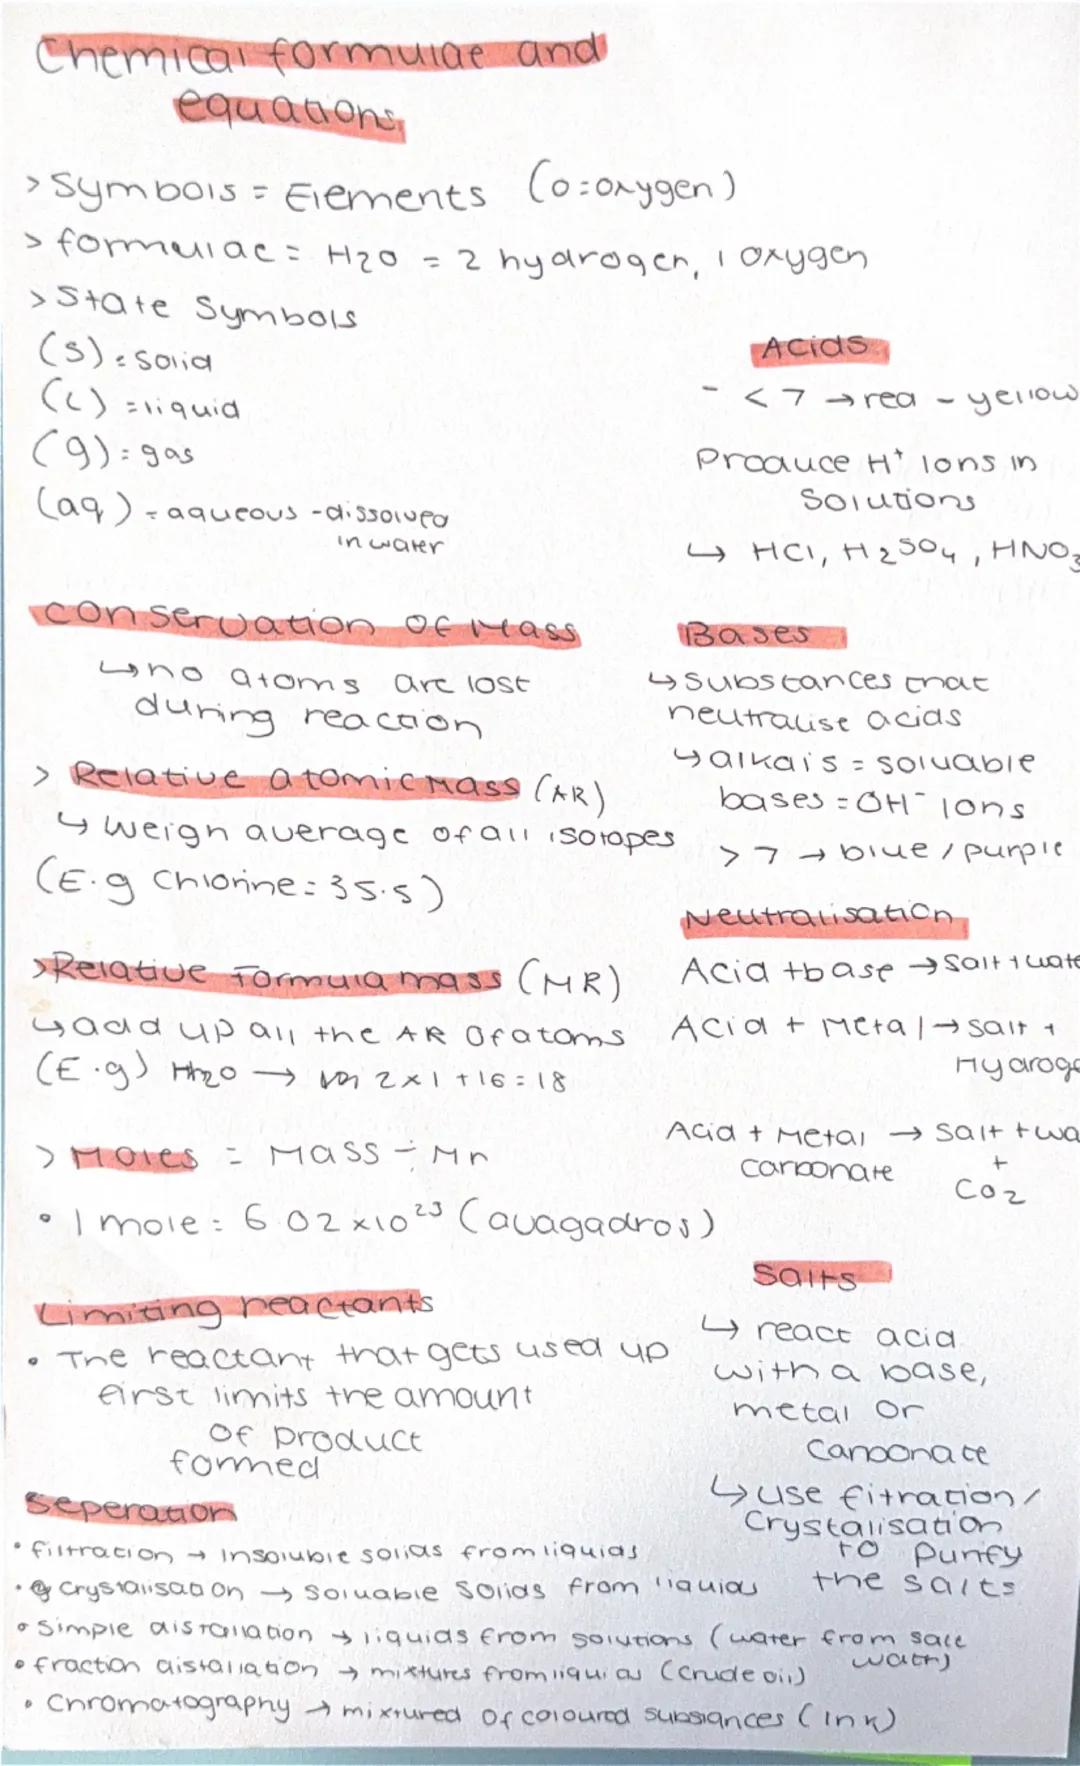 Chemical formulae and
equations
> Symbols = Elements (O = oxygen)
> formulae = H2O = 2 hydrogen, 1 oxygen
> State Symbols
(s) = solid
(L) = liquid
(g) = gas
(aq) = aqueous - dissolved
in water
Conservation of Mass
↳ no atoms are lost
during reaction
> Relative atomic Mass (AR)
↳ Weigh average of all isotopes
(E.g Chlorine = 35.5)
> Relative Formula mass (MR)
↳ add up all the AR of atoms
(E.g) H2O → 2x1 + 16 = 18
> Moles = Mass ÷ Mr
• 1 mole = 6.02 x10²³ (avagadros)
Limiting reactants
• The reactant that gets used up
first limits the amount
of product
formed
Acids
- < 7 → red - yellow
Produce H⁺ Ions in
Solutions
↳ HCl, H2SO4, HNO3
Bases
↳ Substances that
neutralise acids
↳ alkais = soluable
bases = OH⁻ Ions
> 7 → blue / purple
Neutralisation
Acid + base → Salt + wate
Acid + Metal → salt +
Hydroge
Acid + Metal → Salt + wa
carbonate +
CO2
Salts
↳ react acid
with a base,
metal or
Carbonate
↳ use fitration /
Crystalisation
to purify
the salts
Seperation
• filtration → Insoluble solids from liquids
• Crystalisation → Soluable Solids from liquids
• Simple distallation → liquids from solutions (water from salt
water)
• fraction distallation → mixtures from liquids (crude oil)
• Chromatography → mixtured of coloured substances (Ink)